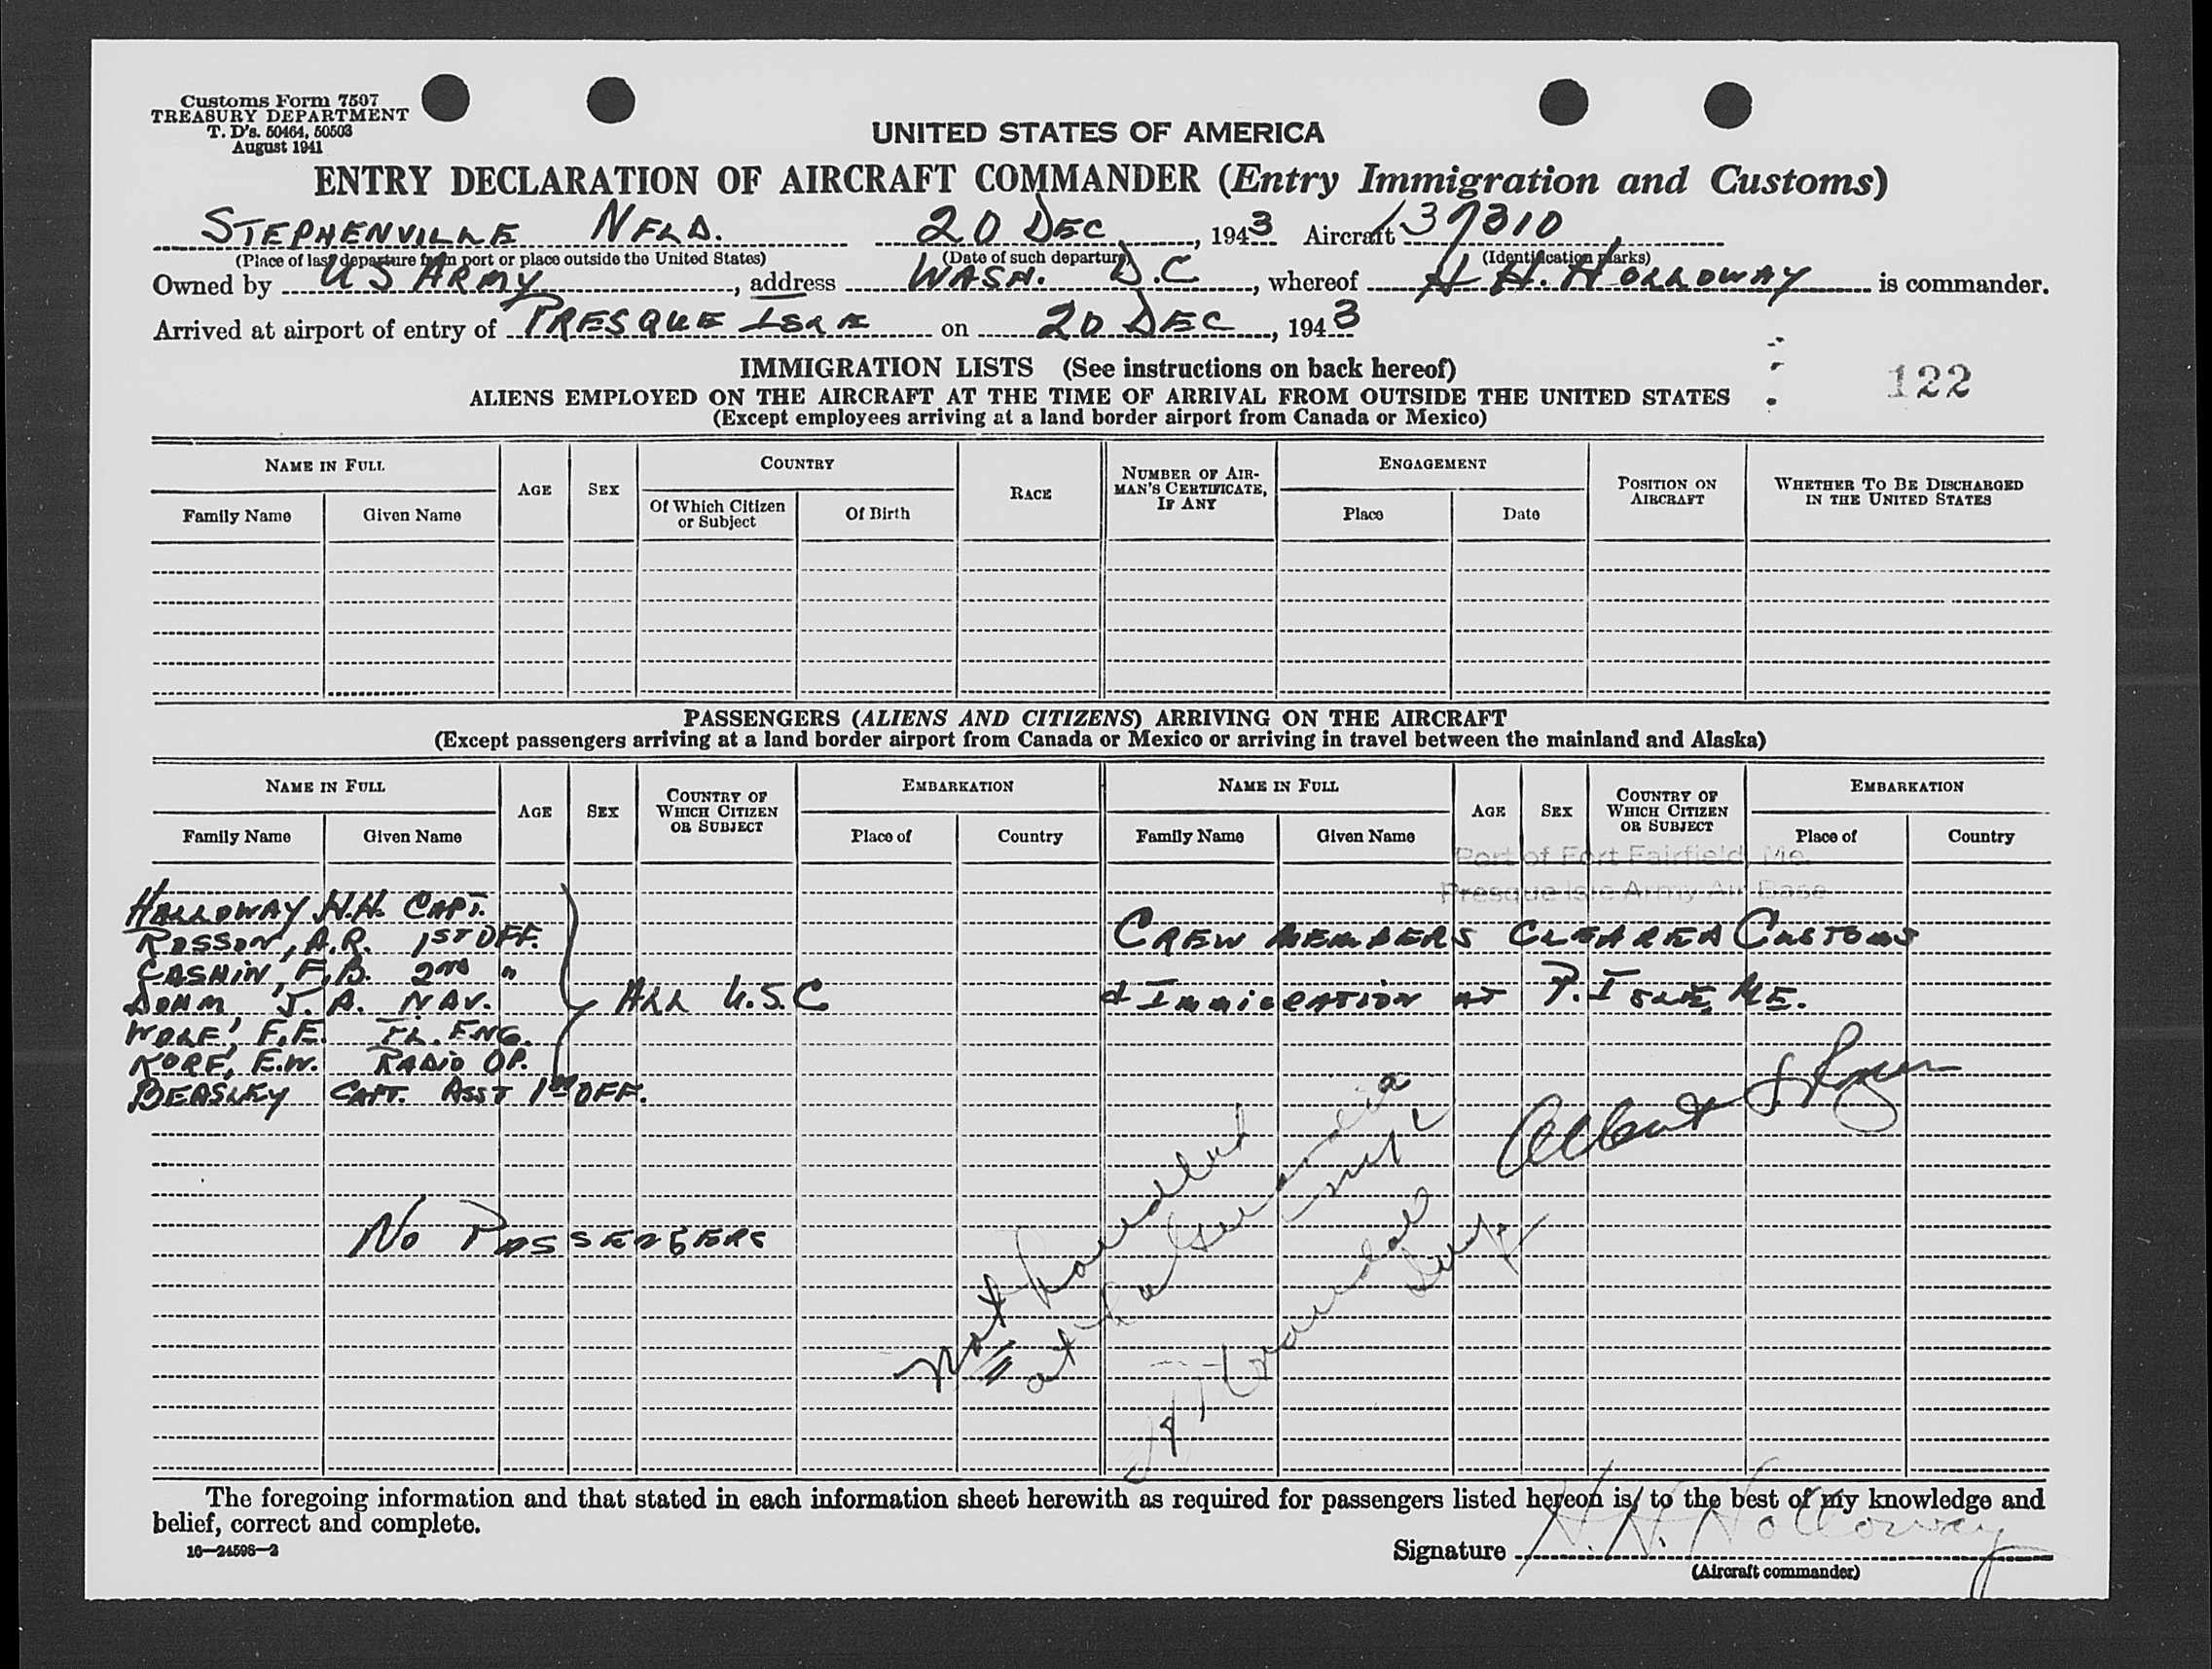 Customs Form 7507
TREASURY DEPARTMENT
T. D's. 50464, 50503
August 1941
UNITED STATES OF AMERICA
ENTRY DECLARATION OF AIRCRAFT COMMANDER (Entry Immigration and Customs)
STEPHENVILLE NFLD. 20 DEC, 1943 Aircraft 37310
(Place of last departure from port or place outside the United States) (Date of such departure) (Identification marks)
Owned by US ARMY, address WASH. D.C, whereof H H. HOLLOWAY is commander.
Arrived at airport of entry of PRESQUE ISLE on 20 DEC, 1943
IMMIGRATION LISTS (See instructions on back hereof)
122
ALIENS EMPLOYED ON THE AIRCRAFT AT THE TIME OF ARRIVAL FROM OUTSIDE THE UNITED STATES
(Except employees arriving at a land border airport from Canada or Mexico)
NAME IN FULL AGE SEX COUNTRY RACE NUMBER OF AIRMAN'S CERTIFICATE, IF ANY ENGAGEMENT POSITION ON AIRCRAFT WHETHER TO BE DISCHARGED IN THE UNITED STATES
Family Name Given Name Of Which Citizen or Subject Of Birth Place Date
PASSENGERS (ALIENS AND CITIZENS) ARRIVING ON THE AIRCRAFT
(Except passengers arriving at a land border airport from Canada or Mexico or arriving in travel between the mainland and Alaska)
NAME IN FULL AGE SEX COUNTRY OF WHICH CITIZEN OR SUBJECT EMBARKATION NAME IN FULL AGE SEX COUNTRY OF WHICH CITIZEN OR SUBJECT EMBARKATION
Family Name Given Name Place of Country Family Name Given Name Place of Country
Port of Fort Fairfield, Me.
Presque Isle Army Air Base
HOLLOWAY H.H. CAPT.
ROSSON, A.R. 1ST OFF.
CASHIN, F.B. 2ND "
DOHM J.A. NAV.
WOLF, F.E. FL. ENG.
KORF, E.W. RADIO OP.
BEASLEY CAPT. ASST 1ST OFF.
ALL U.S.C
CREW MEMBERS CLEARED CUSTOMS
& IMMIGRATION AT P. ISLE, ME.
Albert
NO PASSENGERS
Not handled
at
The foregoing information and that stated in each information sheet herewith as required for passengers listed hereon is, to the best of my knowledge and
belief, correct and complete.
16—24598-2
Signature H. H. Holloway
(Aircraft commander)